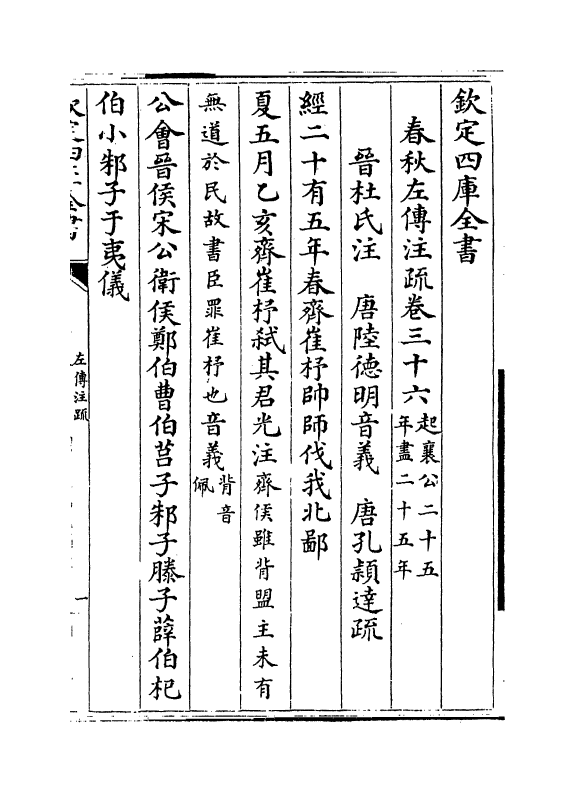 欽定四庫全書
春秋左傳注疏卷三十六起襄公二十五年盡二十五年
晉杜氏注　唐陸德明音義　唐孔穎達疏
經二十有五年春齊崔杼帥師伐我北鄙
夏五月乙亥齊崔杼弒其君光注齊侯雖背盟主未有
無道於民故書臣罪崔杼也音義背音佩
公會晉侯宋公衛侯鄭伯曹伯莒子邾子滕子薛伯杞
伯小邾子于夷儀
左傳注疏
一